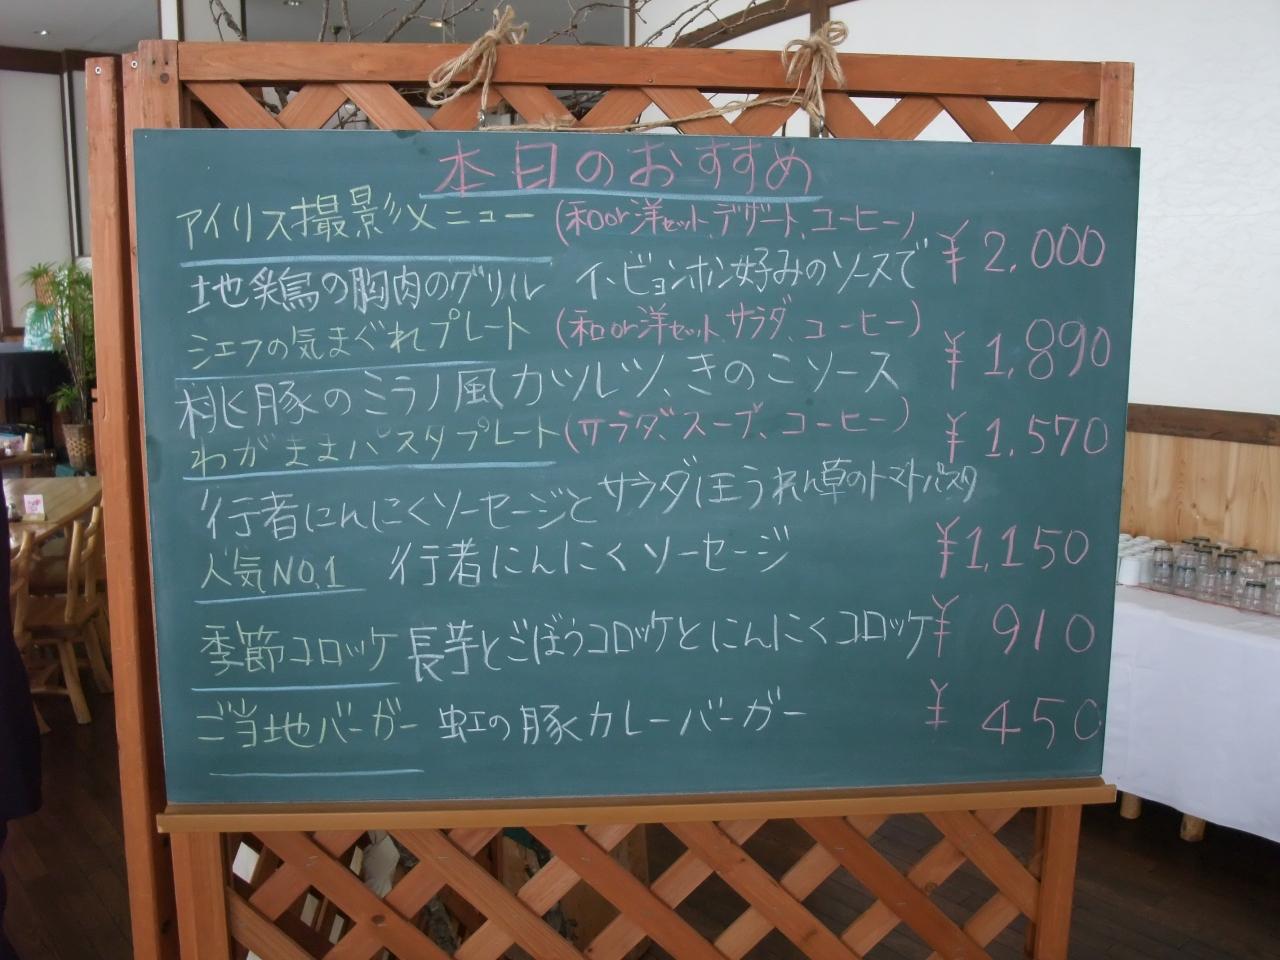 本日のおすすめ
アイリス撮影メニュー (和or洋セット、デザート、コーヒー) ¥2,000
地鶏の胸肉のグリル イ・ビョンホン好みのソースで
シェフの気まぐれプレート (和or洋セット、サラダ、コーヒー) ¥1,890
桃豚のミラノ風カツレツ、きのこソース
わがままパスタプレート (サラダ、スープ、コーヒー) ¥1,570
行者にんにくソーセージとサラダほうれん草のトマトパスタ
人気NO.1 行者にんにくソーセージ ¥1,150
季節コロッケ 長芋とごぼうコロッケとにんにくコロッケ ¥910
ご当地バーガー 虹の豚カレーバーガー ¥450